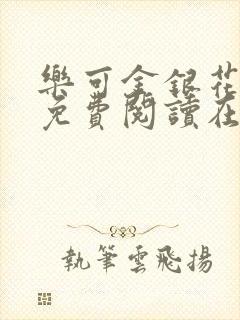 樂可金銀花
免費閱讀在
執筆雲飛揚